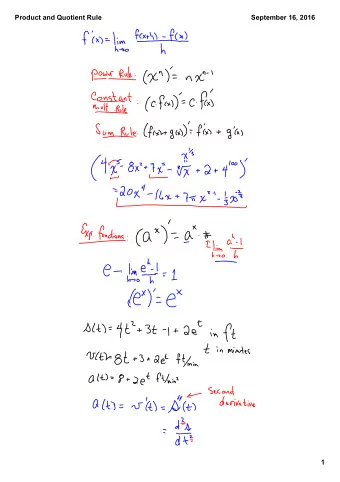 Product and Quotient Rule September 16, 2016
f'(x) = lim h→0 (f(x+h) - f(x)) / h
Power Rule: (xⁿ)' = n xⁿ⁻¹
Constant Mult Rule: (c f(x))' = c f'(x)
Sum Rule: (f(x)+g(x))' = f'(x) + g'(x)
x^(1/3)
(4x⁵ - 8x² + 7x^π - ∛x + 2 + 4¹⁰⁰)'
= 20x⁴ - 16x + 7π x^(π-1) - 1/3 x^(-2/3)
Exp. functions: (aˣ)' = aˣ · #
lim h→0 (aʰ - 1) / h
e - lim h→0 (eʰ - 1) / h = 1
(eˣ)' = eˣ
s(t) = 4t² + 3t - 1 + 2eᵗ in ft
t in minutes
v(t) = 8t + 3 + 2eᵗ ft/min
a(t) = 8 + 2eᵗ ft/min²
Second derivative
a(t) = v'(t) = s''(t)
= d²s / dt²
1